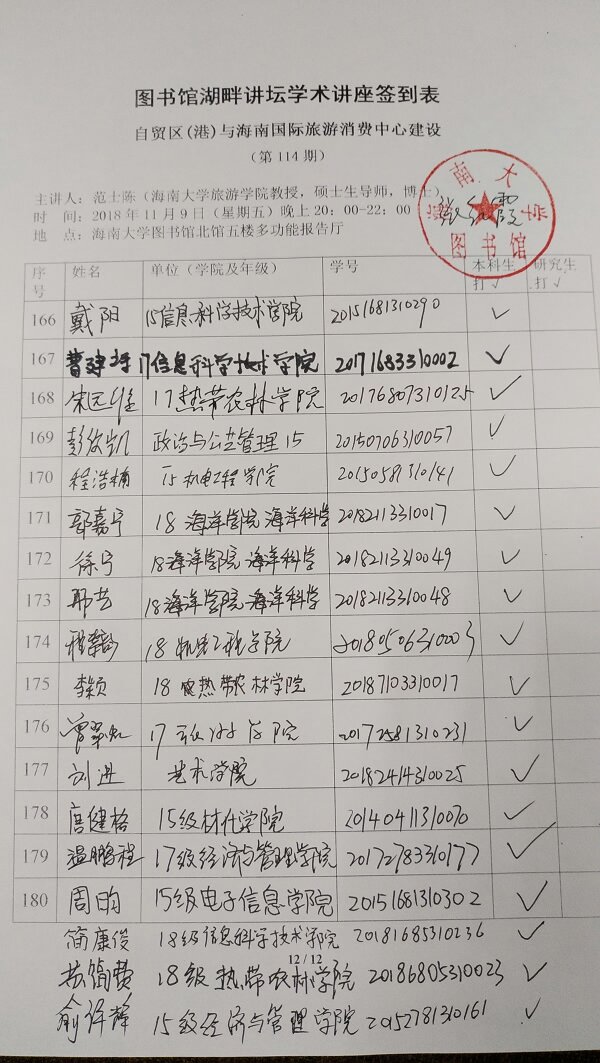 图书馆湖畔讲坛学术讲座签到表
自贸区(港)与海南国际旅游消费中心建设
（第 114 期）
主讲人：范士陈（海南大学旅游学院教授，硕士生导师，博士）
时　间：2018 年 11 月 9 日（星期五）晚上 20：00-22：00
地　点：海南大学图书馆北馆五楼多功能报告厅
海南大学
图书馆
序号 姓名 单位（学院及年级） 学号 本科生打√ 研究生打√
166 戴阳 15信息科学技术学院 20151681310290 √
167 曹建 17信息科学技术学院 20171683310002 √
168 宋 17热带农林学院 20176807310125 √
169 彭 政治与公共管理 15 20150706310057 √
170 程浩楠 15机电工程学院 20150581310141 √
171 郭嘉宁 18 海洋学院 海洋科学 20182113310017 √
172 徐宁 18海洋学院 海洋科学 20182113310049 √
173 18海洋学院 海洋科学 20182113310048 √
174 程 18 机电工程学院 20180506310003 √
175 李颖 18 热带农林学院 20187103310017 √
176 曾 17 学院 20172581310231 √
177 刘进 艺术学院 20182414310025 √
178 唐健格 15级材化学院 20140411310070 √
179 温鹏程 17级经济与管理学院 20172783310177 √
180 周昀 15级电子信息学院 20151681310302 √
简康俊 18级信息科学技术学院 20181685310236 √
12 / 12
18级 热带农林学院 20186805310023 √
俞 15级经济与管理学院 20152781310161 √